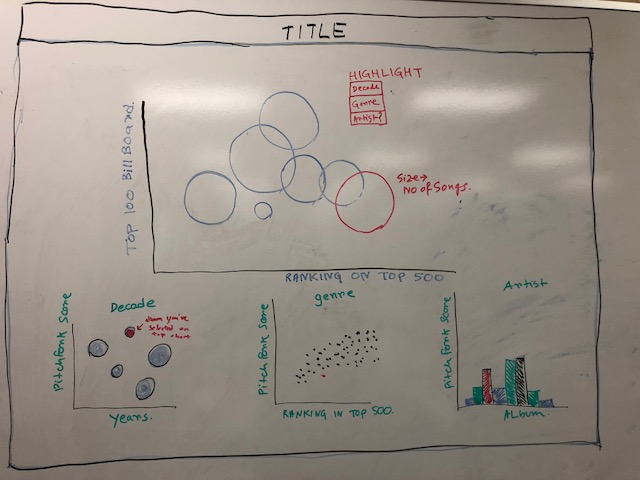 TITLE
HIGHLIGHT
Decade
Genre
Artist?
TOP 100 BillBoard.
Size→
No of Songs.
RANKING ON TOP 500
Decade
genre
Artist
Pitchfork Score
shown you've
selected on
top chart
Years.
Pitchfork Score
RANKING IN TOP 500.
Pitchfork Score
ALbum.